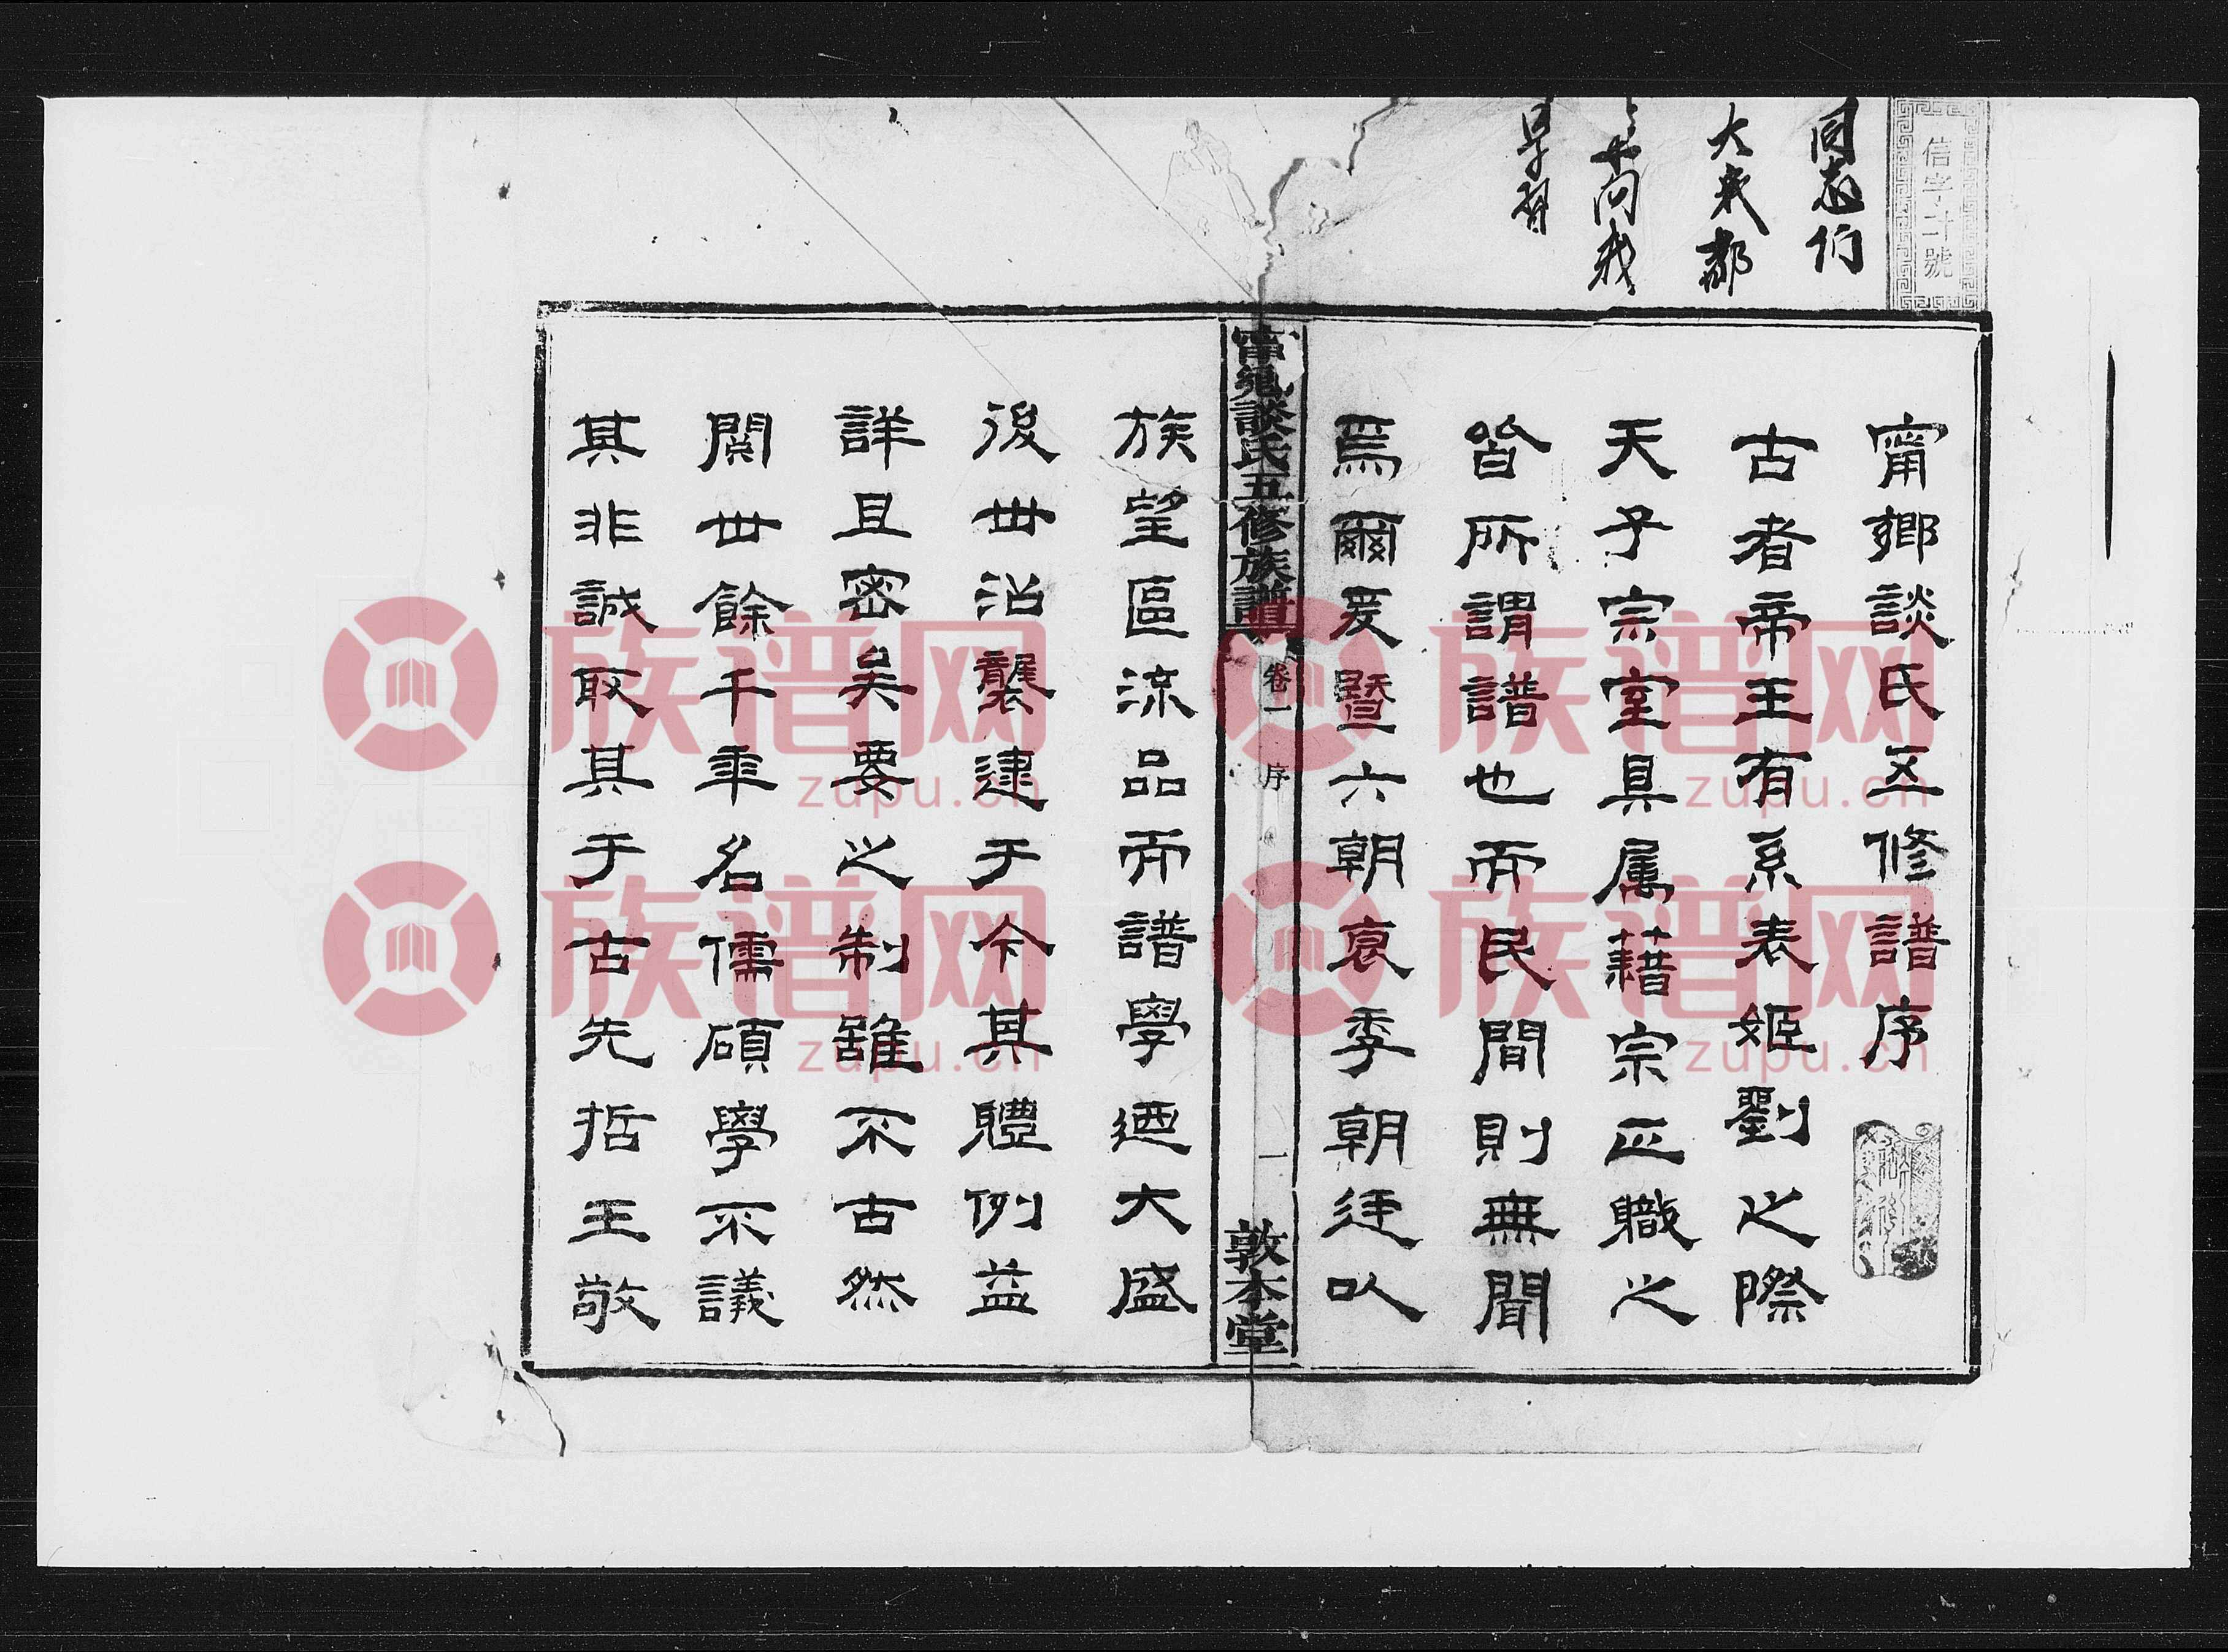 信字廿一號
同志们
大家都
来问我
早習
甯鄉談氏五修譜序
古者帝王有系表姬劉之際
天子宗室具属藉宗正職之
皆所謂譜也而民間則無聞
焉爾爰暨六朝衰季朝廷以
甯邑談氏五修族譜
卷一
序
一
敦本堂
族望區流品而譜學迺大盛
後世沿襲建于今其體例益
詳且密矣要之制雖不古然
閱世餘千年名儒碩學不議
其非誠取其于古先哲王敬
族谱网
zupu.cn
族谱网
zupu.cn
族谱网
zupu.cn
族谱网
zupu.cn